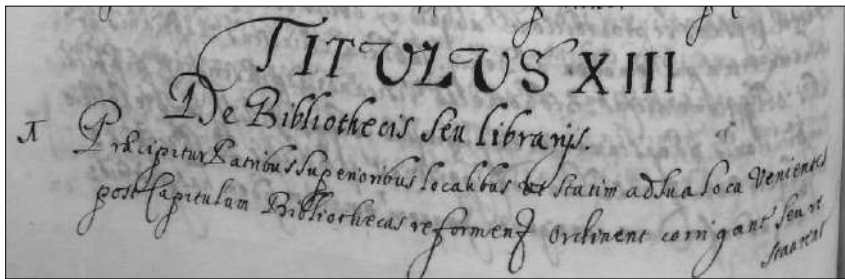 TITULUS XIII
De Bibliothecis seu librarijs.
1 Præcipitur Patribus superioribus localibus ut statim ad sua loca venientes
post Capitulum Bibliothecas reforment ordinent corrigant seu re
staurent